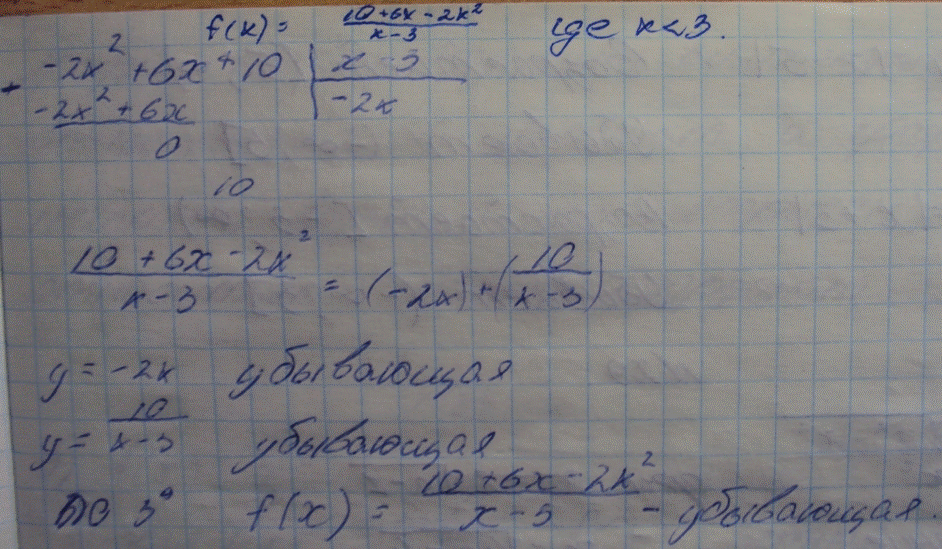 f(x) = (10+6x-2x²)/(x-3) где x<3.
-2x² + 6x + 10 | x - 3
-2x² + 6x | -2x
0
10
(10 + 6x - 2x²)/(x - 3) = (-2x) + (10/(x-3))
y = -2x убывающая
y = 10/(x-3) убывающая
по 3° f(x) = (10+6x-2x²)/(x-3) - убывающая.